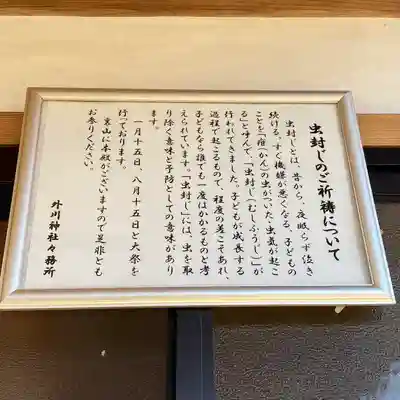 虫封じのご祈祷について
虫封じとは、昔から、夜眠らず泣き
続ける、すぐ機嫌が悪くなる、子どもの
ことを「疳(かん)の虫がついた、虫気が起こ
る」と呼んで、「虫封じ(むしふうじ)」が
行われてきました。子どもが成長する
過程で起こるもので、程度の差こそあれ、
子どもなら誰でも一度はかかるものと考
えられています。「虫封じ」には、虫を取
り除く意味と予防としての意味があり
ます。
一月十五日、八月十五日と大祭を
行っております。
裏山に本殿がございますので是非とも
お参りください。
外川神社々務所